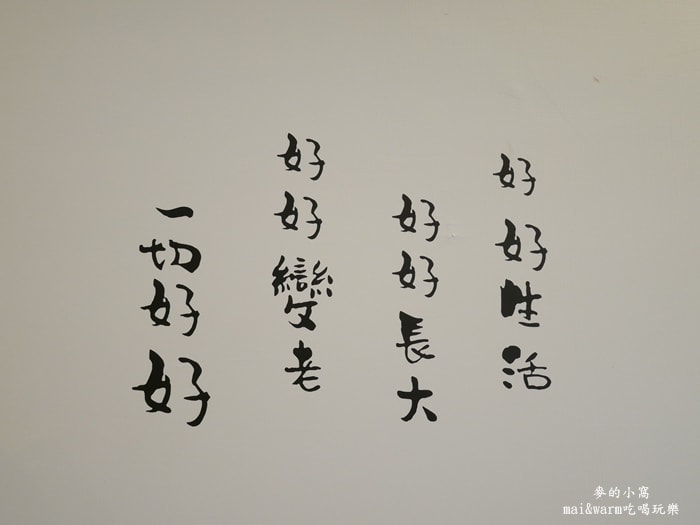 好好生活
好好長大
好好變老
一切好好
麥的小窩
mai&warm吃喝玩樂